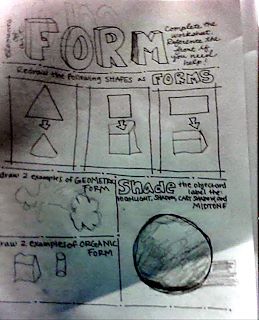 Elements
of
a
FORM
Complete the
worksheet.
Reference the
front if
you need
help!
Redraw the following SHAPES as FORMS
draw 2 examples of GEOMETRIC
FORM
Shade the object and
label the:
HIGHLIGHT, SHADOW, CAST SHADOW, AND
MIDTONE
raw 2 examples of ORGANIC
FORM